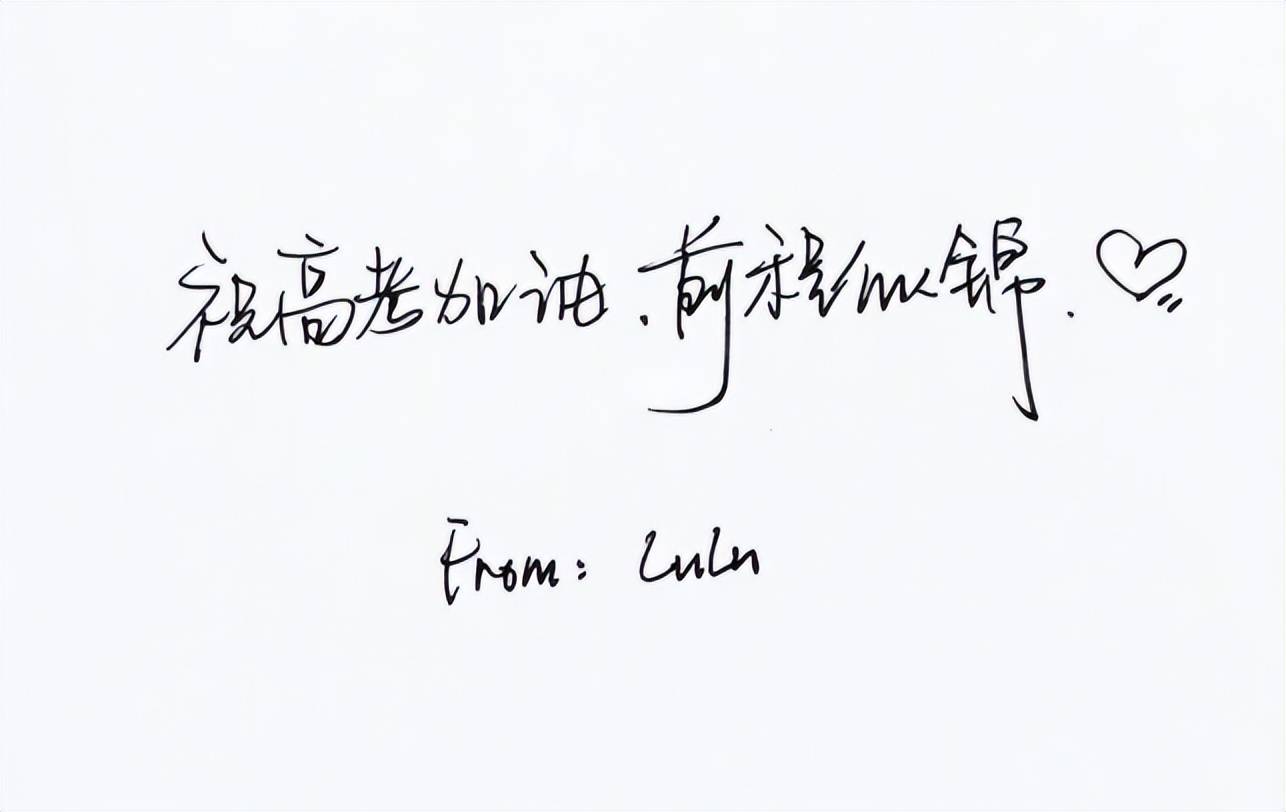 祝高考加油.前程似锦.♡
From: LuLu